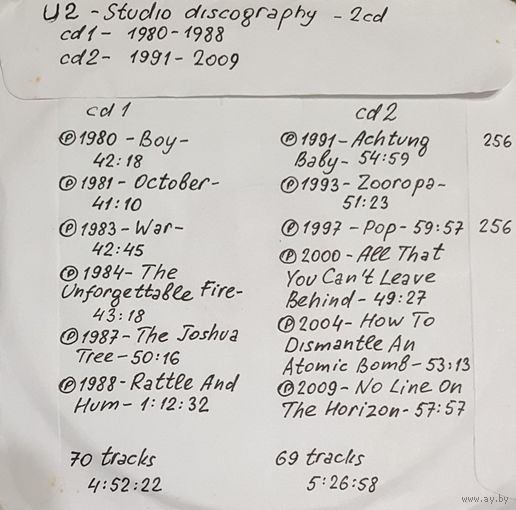 U2 - Studio discography - 2cd
cd1 - 1980-1988
cd2 - 1991-2009
cd1
Ⓟ1980 - Boy -
42:18
Ⓟ1981 - October -
41:10
Ⓟ1983 - War -
42:45
Ⓟ1984 - The
Unforgettable Fire -
43:18
Ⓟ1987 - The Joshua
Tree - 50:16
Ⓟ1988 - Rattle And
Hum - 1:12:32
70 tracks
4:52:22
cd2
Ⓟ1991 - Achtung 256
Baby - 54:59
Ⓟ1993 - Zooropa -
51:23
Ⓟ1997 - Pop - 59:57 256
Ⓟ2000 - All That
You Can't Leave
Behind - 49:27
Ⓟ2004 - How To
Dismantle An
Atomic Bomb - 53:13
Ⓟ2009 - No Line On
The Horizon - 57:57
69 tracks
5:26:58
www.ay.by